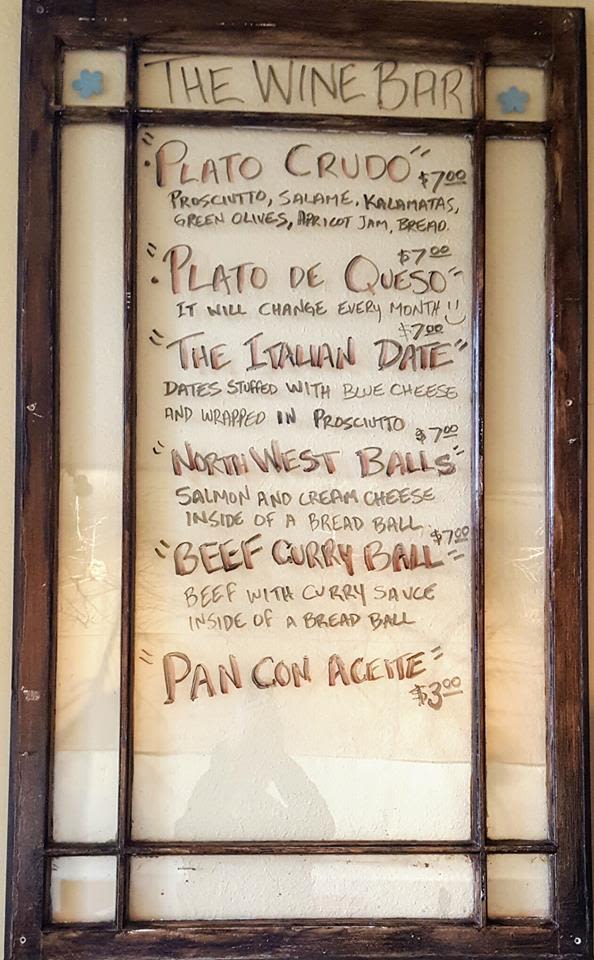 THE WINE BAR
"PLATO CRUDO" $7.00
PROSCIUTTO, SALAME, KALAMATAS,
GREEN OLIVES, APRICOT JAM, BREAD.
$7.00
"PLATO DE QUESO"
IT WILL CHANGE EVERY MONTH!!
$7.00
"THE ITALIAN DATE"
DATES STUFFED WITH BLUE CHEESE
AND WRAPPED IN PROSCIUTTO
$7.00
"NORTHWEST BALLS"
SALMON AND CREAM CHEESE
INSIDE OF A BREAD BALL.
$7.00
"BEEF CURRY BALL"
BEEF WITH CURRY SAUCE
INSIDE OF A BREAD BALL
"PAN CON ACEITE"
$3.00